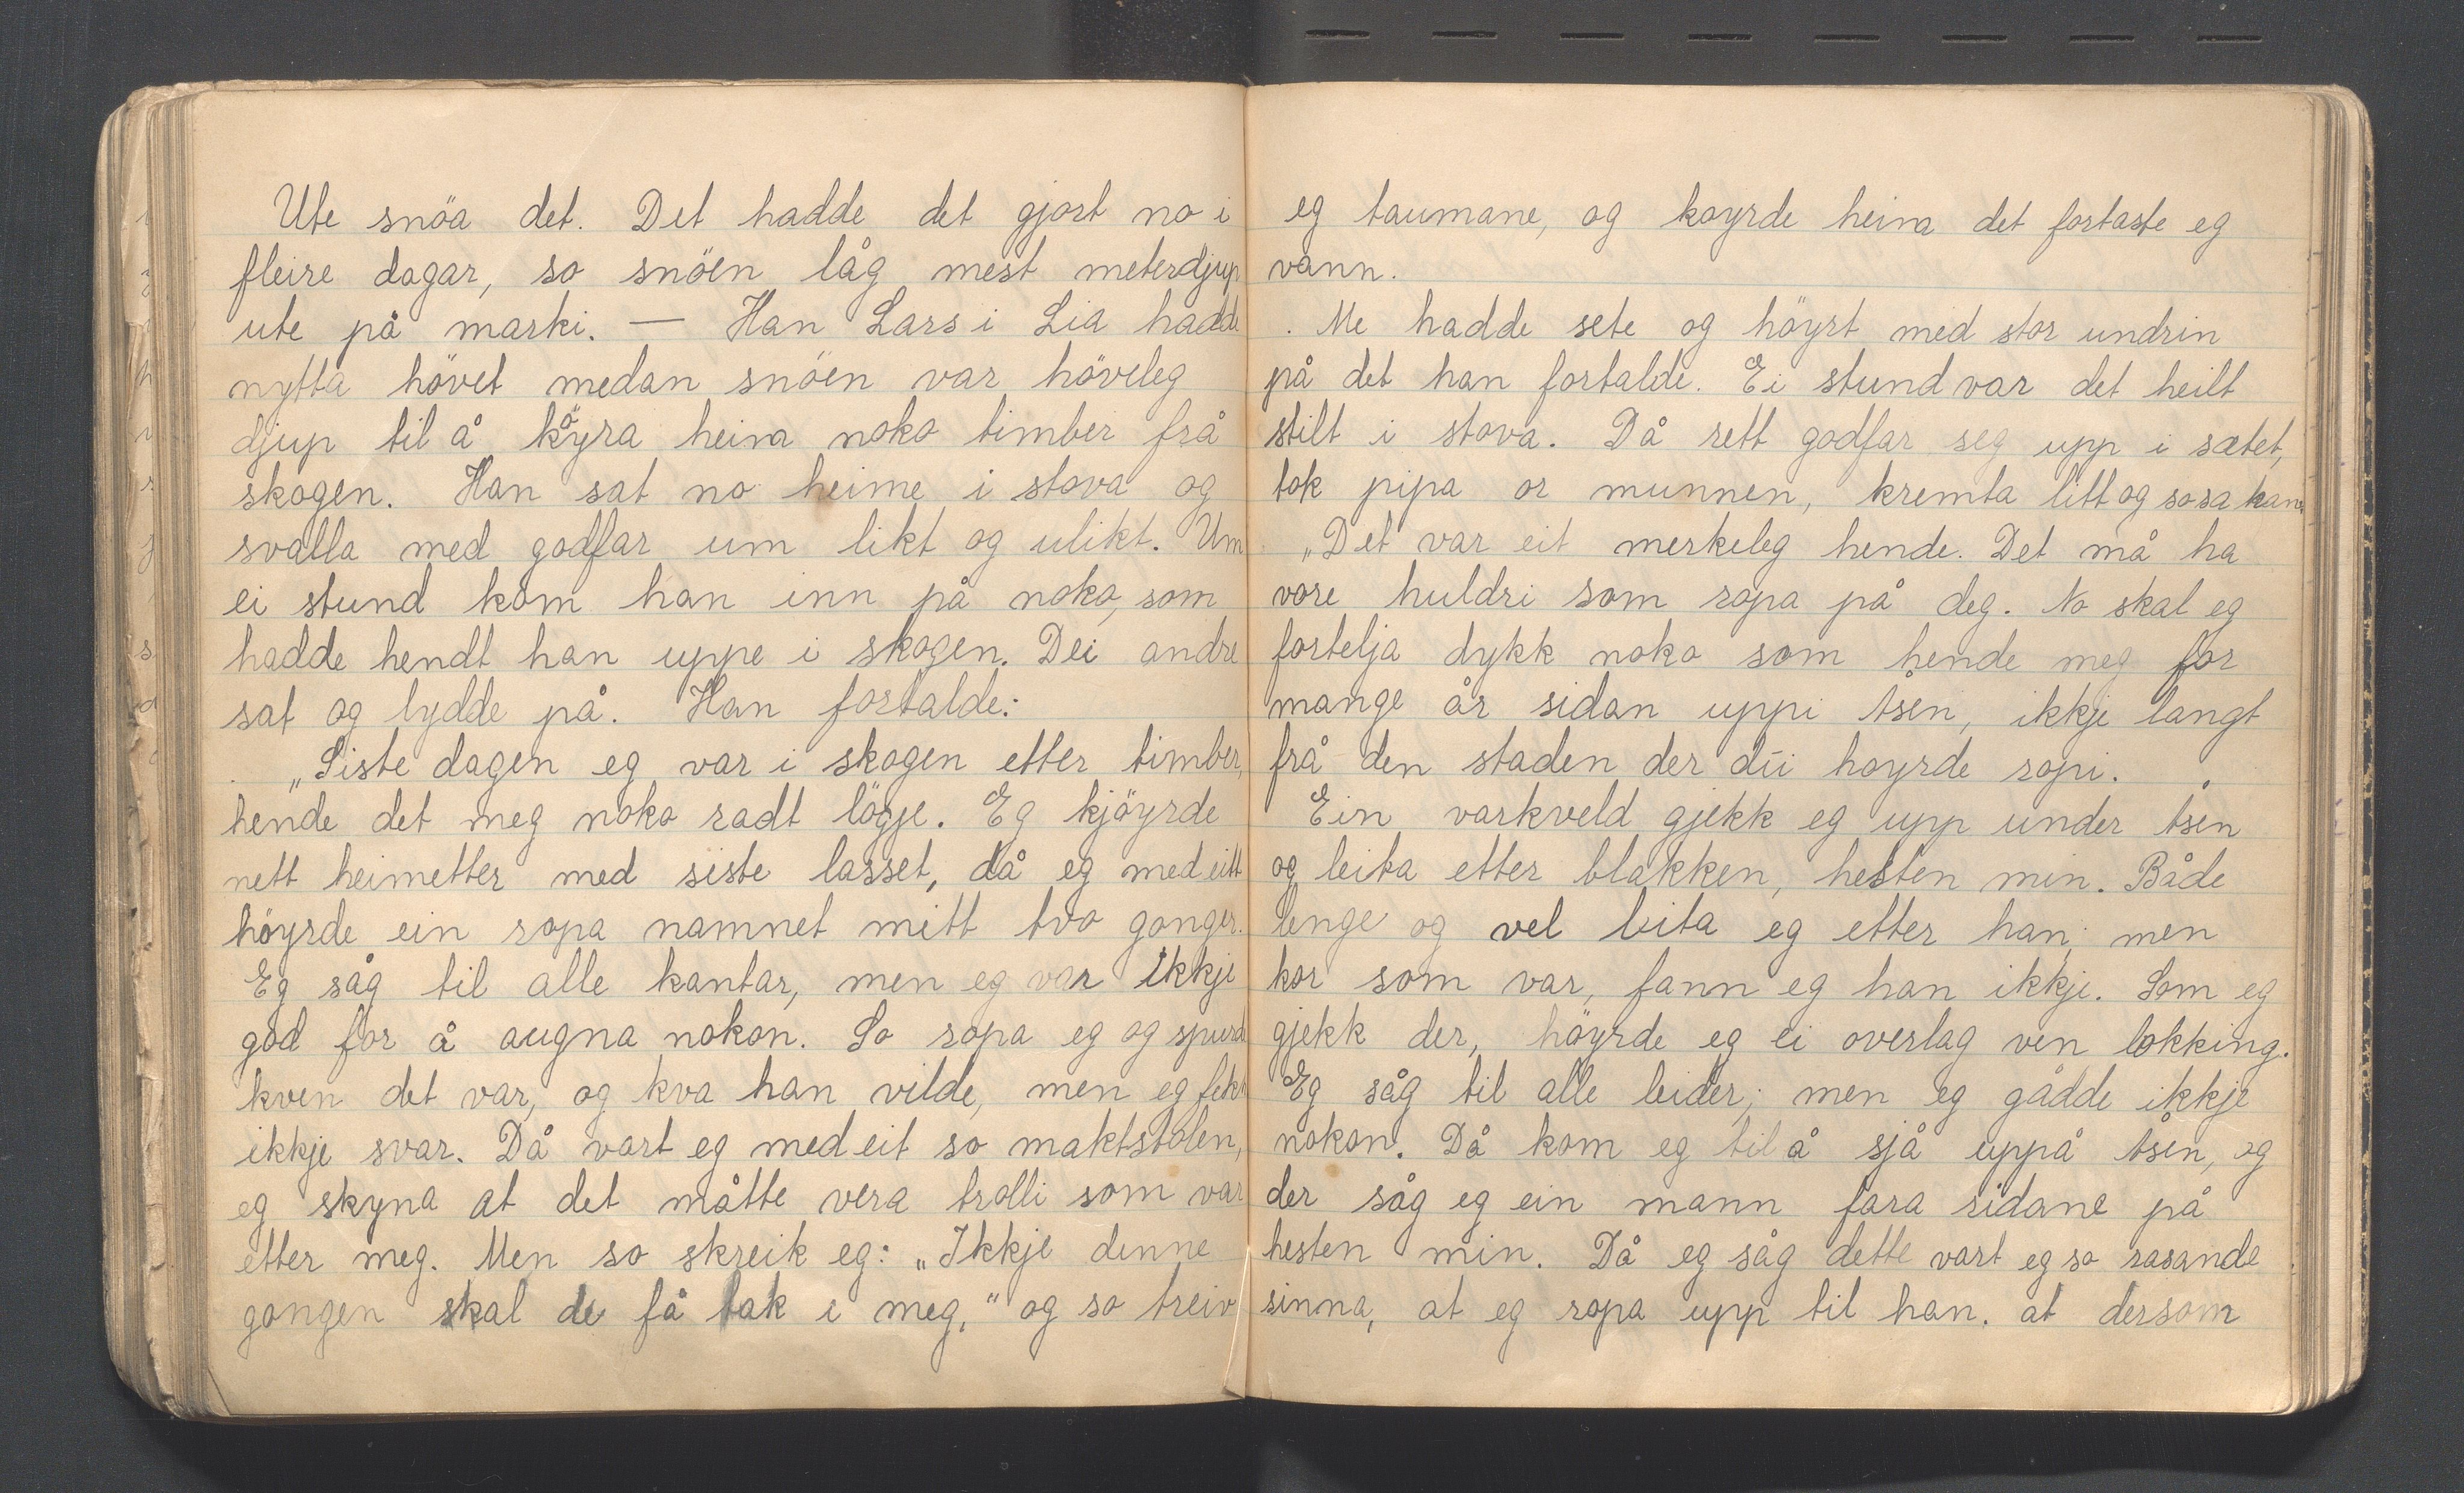 Ute snöa det. Det hadde det gjort no i
fleire dagar, so snöen låg mest meterdjup
ute på marki. — Han Lars i Lia hadde
nytta hövet medan snöen var höveleg
djup til å köyra heim noko timber frå
skogen. Han sat no heime i stova og
svalla med godfar um likt og ulikt. Um
ei stund kom han inn på noko, som
hadde hendt han uppe i skogen. Dei andre
sat og lydde på. Han fortalde:
„Siste dagen eg var i skogen etter timber,
hende det meg noko radt lögje. Eg kjöyrde
nett heimetter med siste lasset, då eg med eitt
höyrde ein ropa namnet mitt tvo gonger.
Eg såg til alle kantar, men eg var ikkje
god for å augna nokon. So ropa eg og spurde
kven det var, og kva han vilde, men eg fekk
ikkje svar. Då vart eg med eit so maktstolen,
eg skyna at det måtte vera trolli som var
etter meg. Men so skreik eg: „Ikkje denne
gongen skal de få tak i meg," og so treiv
eg taumane, og koyrde heim det fortaste eg
vann.
Me hadde sete og höyrt med stor undrin
på det han fortalde. Ei stund var det heilt
stilt i stova. Då rett godfar seg upp i sætet,
tok pipa or munnen, kremta litt og so sa han
„Det var eit merkeleg hende. Det må ha
vore huldri som ropa på deg. No skal eg
fortelja dykk noko som hende meg for
mange år sidan uppi åsen, ikkje langt
frå den staden der du hoyrde ropi.
Ein varkveld gjekk eg upp under åsen
og leita etter blakken, hesten min. Både
lenge og vel leita eg etter han, men
kor som var, fann eg han ikkje. Som eg
gjekk der, höyrde eg ei overlag ven lokking.
Eg såg til alle leider; men eg gådde ikkje
nokon. Då kom eg til å sjå uppå åsen, og
der såg eg ein mann fara ridane på
hesten min. Då eg såg dette vart eg so rasande
sinna, at eg ropa upp til han. at dersom